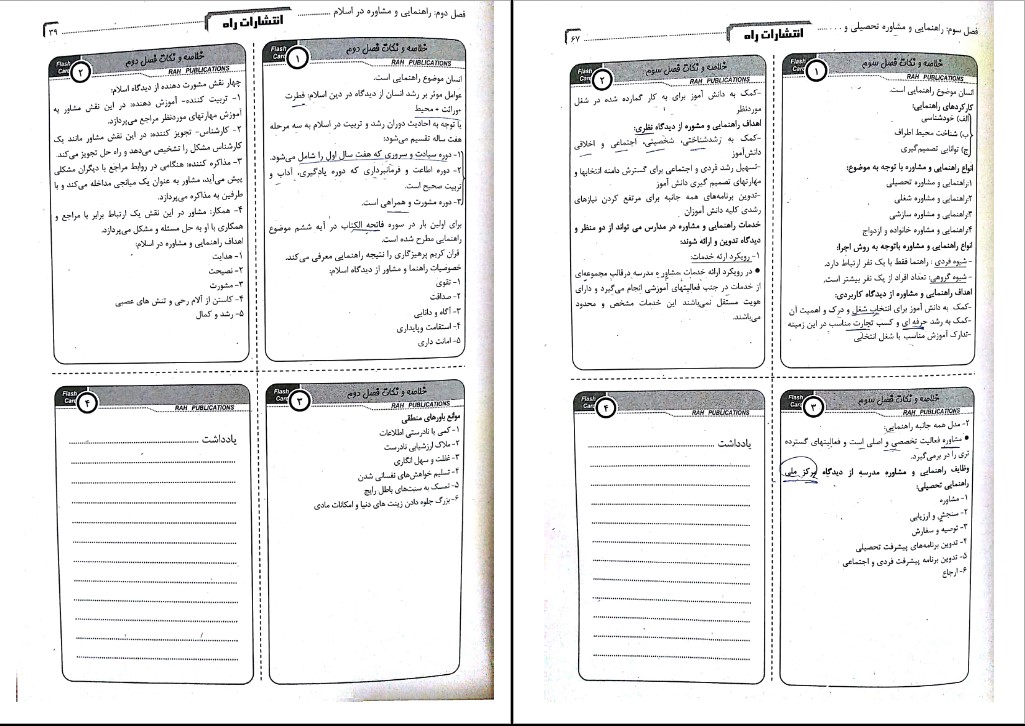 فصل دوم: راهنمایی و مشاوره در اسلام
انتشارات راه
۳۹
Flash Card
۱
خلاصه و نکات فصل دوم
RAH PUBLICATIONS
انسان موضوع راهنمایی است.
عوامل موثر بر رشد انسان از دیدگاه در دین اسلام: فطرت
+وراثت + محیط
با توجه به احادیث دوران رشد و تربیت در اسلام به سه مرحله
هفت ساله تقسیم می‌شود:
۱- دوره سیادت و سروری که هفت سال اول را شامل می‌شود.
۲- دوره اطاعت و فرمانبرداری که دوره یادگیری، آداب و
تربیت صحیح است.
۳- دوره مشورت و همراهی است.
برای اولین بار در سوره فاتحه الکتاب در آیه ششم موضوع
راهنمایی مطرح شده است.
قران کریم پرهیزگاری را نتیجه راهنمایی معرفی می‌کند.
خصوصیات راهنما و مشاور از دیدگاه اسلام:
۱- تقوی
۲- صداقت
۳- آگاه و دانایی
۴- استقامت وپایداری
۵- امانت داری
Flash Card
۲
خلاصه و نکات فصل دوم
RAH PUBLICATIONS
چهار نقش مشورت دهنده از دیدگاه اسلام:
۱- تربیت کننده- آموزش دهنده: در این نقش مشاور به
آموزش مهارتهای موردنظر مراجع می‌پردازد.
۲- کارشناس- تجویز کننده: در این نقش مشاور مانند یک
کارشناس مشکل را تشخیص می‌دهد و راه حل تجویز می‌کند.
۳- مذاکره کننده: هنگامی در روابط مراجع با دیگران مشکلی
پیش می‌آید، مشاور به عنوان یک میانجی مداخله می‌کند و با
طرفین به مذاکره می‌پردازد.
۴- همکار: مشاور در این نقش یک ارتباط برابر با مراجع و
همکاری با او به حل مسئله و مشکل می‌پردازد.
اهداف راهنمایی و مشاوره در اسلام:
۱- هدایت
۲- نصیحت
۳- مشورت
۴- کاستن از آلام رحی و تنش های عصبی
۵- رشد و کمال
Flash Card
۳
خلاصه و نکات فصل دوم
RAH PUBLICATIONS
موانع باورهای منطقی
۱- کمی یا نادرستی اطلاعات
۲- ملاک ارزشیابی نادرست
۳- غفلت و سهل انگاری
۴- تسلیم خواهش‌های نفسانی شدن
۵- تمسک به سنت‌های باطل رایج
۶- بزرگ جلوه دادن زینت های دنیا و امکانات مادی
Flash Card
۴
RAH PUBLICATIONS
یادداشت
فصل سوم: راهنمایی و مشاوره تحصیلی و . . . .
انتشارات راه
۶۷
Flash Card
۱
خلاصه و نکات فصل سوم
RAH PUBLICATIONS
انسان موضوع راهنمایی است.
کارکردهای راهنمایی:
الف) خودشناسی
ب) شناخت محیط اطراف
ج) توانایی تصمیم‌گیری
انواع راهنمایی و مشاوره با توجه به موضوع:
۱-راهنمایی و مشاوره تحصیلی
۲-راهنمایی و مشاوره شغلی
۳-راهنمایی و مشاوره سازشی
۴-راهنمایی و مشاوره خانواده و ازدواج
انواع راهنمایی و مشاوره باتوجه به روش اجرا:
-شیوه فردی : راهنما فقط با یک نفر ارتباط دارد.
-شیوه گروهی: تعداد افراد از یک نفر بیشتر است.
اهداف راهنمایی و مشاوره از دیدگاه کاربردی:
-کمک به دانش آموز برای انتخاب شغل و درک و اهمیت آن
-کمک به رشد حرفه ای و کسب تجارت مناسب در این زمینه
-تدارک آموزش مناسب با شغل انتخابی
Flash Card
۲
خلاصه و نکات فصل سوم
RAH PUBLICATIONS
-کمک به دانش آموز برای به کار گمارده شده در شغل
موردنظر
اهداف راهنمایی و مشوره از دیدگاه نظری:
-کمک به رشدشناختی، شخصیتی، اجتماعی و اخلاقی
دانش‌آموز
-تسهیل رشد فردی و اجتماعی برای گسترش دامنه انتخابها و
مهارتهای تصمیم گیری دانش آموز
-تدوین برنامه‌های همه جانبه برای مرتفع کردن نیازهای
رشدی کلیه دانش آموزان
خدمات راهنمایی و مشاوره در مدارس می تواند از دو منظر و
دیدگاه تدوین و ارائه شوند:
۱-رویکرد ارئه خدمات:
● در رویکرد ارائه خدمات مشاوره مدرسه درقالب مجموعه‌ای
از خدمات در جنب فعالیتهای آموزشی انجام می‌گیرد و دارای
هویت مستقل نمی‌باشند این خدمات مشخص و محدود
می‌باشند.
Flash Card
۳
خلاصه و نکات فصل سوم
RAH PUBLICATIONS
۲- مدل همه جانبه راهنمایی:
● مشاوره فعالیت تخصصی و اصلی است و فعالیتهای گسترده
تری را در برمی‌گیرد.
وظایف راهنمایی و مشاوره مدرسه از دیدگاه مرکز ملی
راهنمایی تحصیلی:
۱- مشاوره
۲- سنجش و ارزیابی
۳- توصیه و سفارش
۴- تدوین برنامه‌های پیشرفت تحصیلی
۵- تدوین برنامه پیشرفت فردی و اجتماعی
۶- ارجاع
Flash Card
۴
RAH PUBLICATIONS
یادداشت